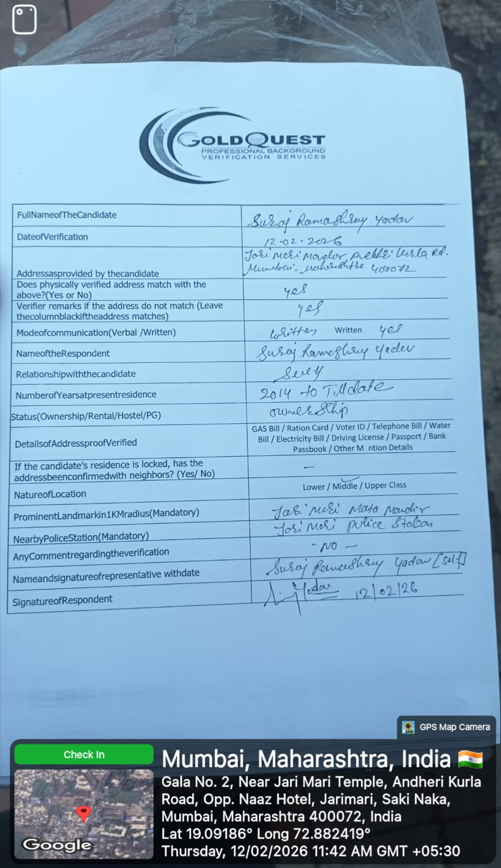 GOLDQUEST
PROFESSIONAL BACKGROUND
VERIFICATION SERVICES
FullNameofTheCandidate Suraj Ramashray Yadav
DateofVerification 12.02.2026
Addressasprovided by thecandidate Jari Meri Mandir Andheri Kurla Rd. Mumbai, Maharashtra 400072
Does physically verified address match with the above?(Yes or No) yes
Verifier remarks if the address do not match (Leave thecolumnblackiftheaddress matches) yes
Modeofcommunication(Verbal /Written) Written Written yes
NameoftheRespondent Suraj Ramashray Yadav
Relationshipwiththecandidate Self
NumberofYearsatpresentresidence 2014 to Till date
Status(Ownership/Rental/Hostel/PG) ownership
DetailsofAddressproofVerified GAS Bill / Ration Card / Voter ID / Telephone Bill / Water Bill / Electricity Bill / Driving License / Passport / Bank Passbook / Other M ntion Details
If the candidate's residence is locked, has the addressbeenconfirmedwith neighbors? (Yes/ No) —
NatureofLocation Lower / Middle / Upper Class
ProminentLandmarkin1KMradius(Mandatory) Jari Meri Mata Mandir
NearbyPoliceStation(Mandatory) Jari Meri Police Station
AnyCommentregardingtheverification - NO -
Nameandsignatureofrepresentative withdate Suraj Ramashray Yadav [self]
SignatureofRespondent Yadav 12/02/26
GPS Map Camera
Check In
Google
Mumbai, Maharashtra, India
Gala No. 2, Near Jari Mari Temple, Andheri Kurla
Road, Opp. Naaz Hotel, Jarimari, Saki Naka,
Mumbai, Maharashtra 400072, India
Lat 19.09186° Long 72.882419°
Thursday, 12/02/2026 11:42 AM GMT +05:30